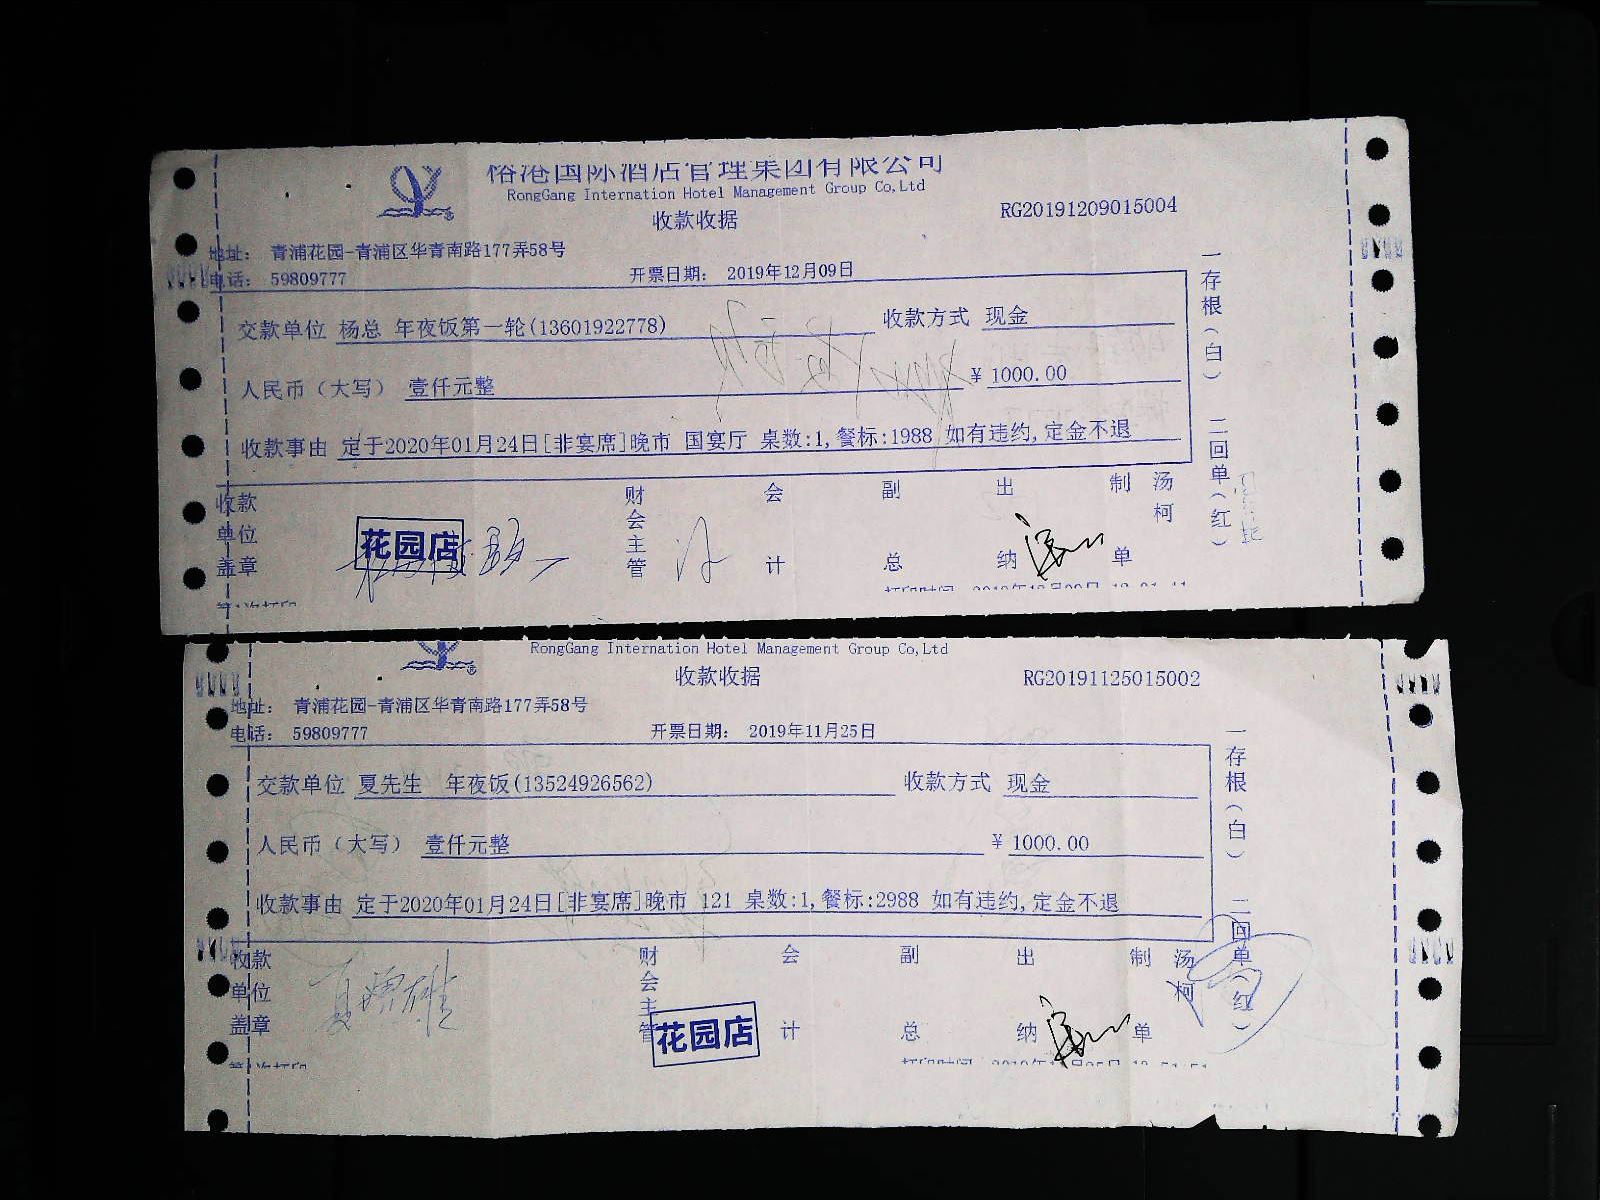 裕港国际酒店管理集团有限公司
RongGang Internation Hotel Management Group Co,Ltd
收款收据
RG20191209015004
地址： 青浦花园-青浦区华青南路177弄58号
电话： 59809777
开票日期： 2019年12月09日
交款单位 杨总 年夜饭第一轮(13601922778)
收款方式 现金
人民币（大写） 壹仟元整
¥ 1000.00
收款事由 定于2020年01月24日[非宴席]晚市 国宴厅 桌数:1,餐标:1988 如有违约,定金不退
一存根（白） 二回单（红）
收款单位盖章
花园店
财会主管
会计
副总
出纳
制单
汤柯
第1次打印
RongGang Internation Hotel Management Group Co,Ltd
收款收据
RG20191125015002
地址： 青浦花园-青浦区华青南路177弄58号
电话： 59809777
开票日期： 2019年11月25日
交款单位 夏先生 年夜饭(13524926562)
收款方式 现金
人民币（大写） 壹仟元整
¥ 1000.00
收款事由 定于2020年01月24日[非宴席]晚市 121 桌数:1,餐标:2988 如有违约,定金不退
一存根（白） 二回单（红）
收款单位盖章
财会主管
花园店
会计
副总
出纳
制单
汤柯
第1次打印